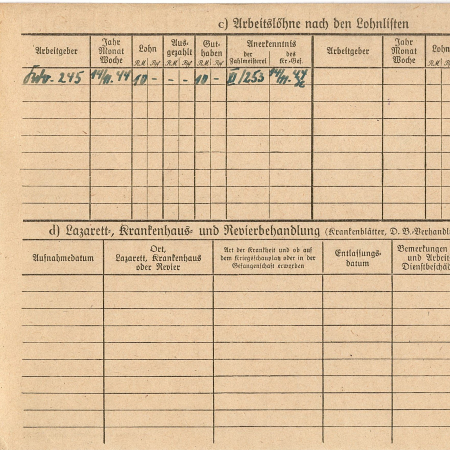 c) Arbeitslöhne nach den Lohnlisten
Arbeitgeber
Jahr Monat Woche
Lohn
RM Rpf
Ausgezahlt
RM Rpf
Guthaben
RM Rpf
Anerkenntnis
der Zahlmeisterei
des Kr.-Gef.
Arbeitgeber
Jahr Monat Woche
Lohn
RM
245
10 - - - 10 -
II/253
d) Lazarett-, Krankenhaus- und Revierbehandlung (Krankenblätter, D. B.-Verhandl
Aufnahmedatum
Ort,
Lazarett, Krankenhaus
oder Revier
Art der Krankheit und ob auf
dem Kriegsschauplatz oder in der
Gefangenschaft erworben
Entlassungs-
datum
Bemerkungen
und Arbeit
Dienstbeschäd